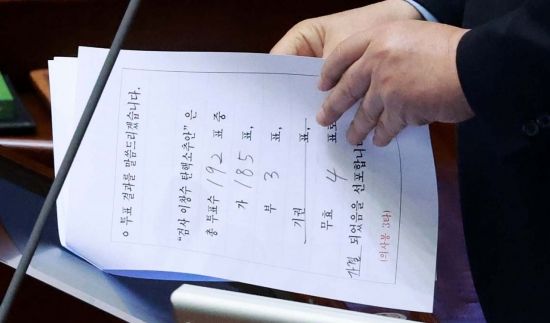 ○ 투표 결과를 말씀드리겠습니다.
"검사 이창수 탄핵소추안"은
총 투표수 192 표 중
가 185 표,
부 3 표,
기권 표,
무효 4 표로
가결 되었음을 선포합니
(의사봉 3타)